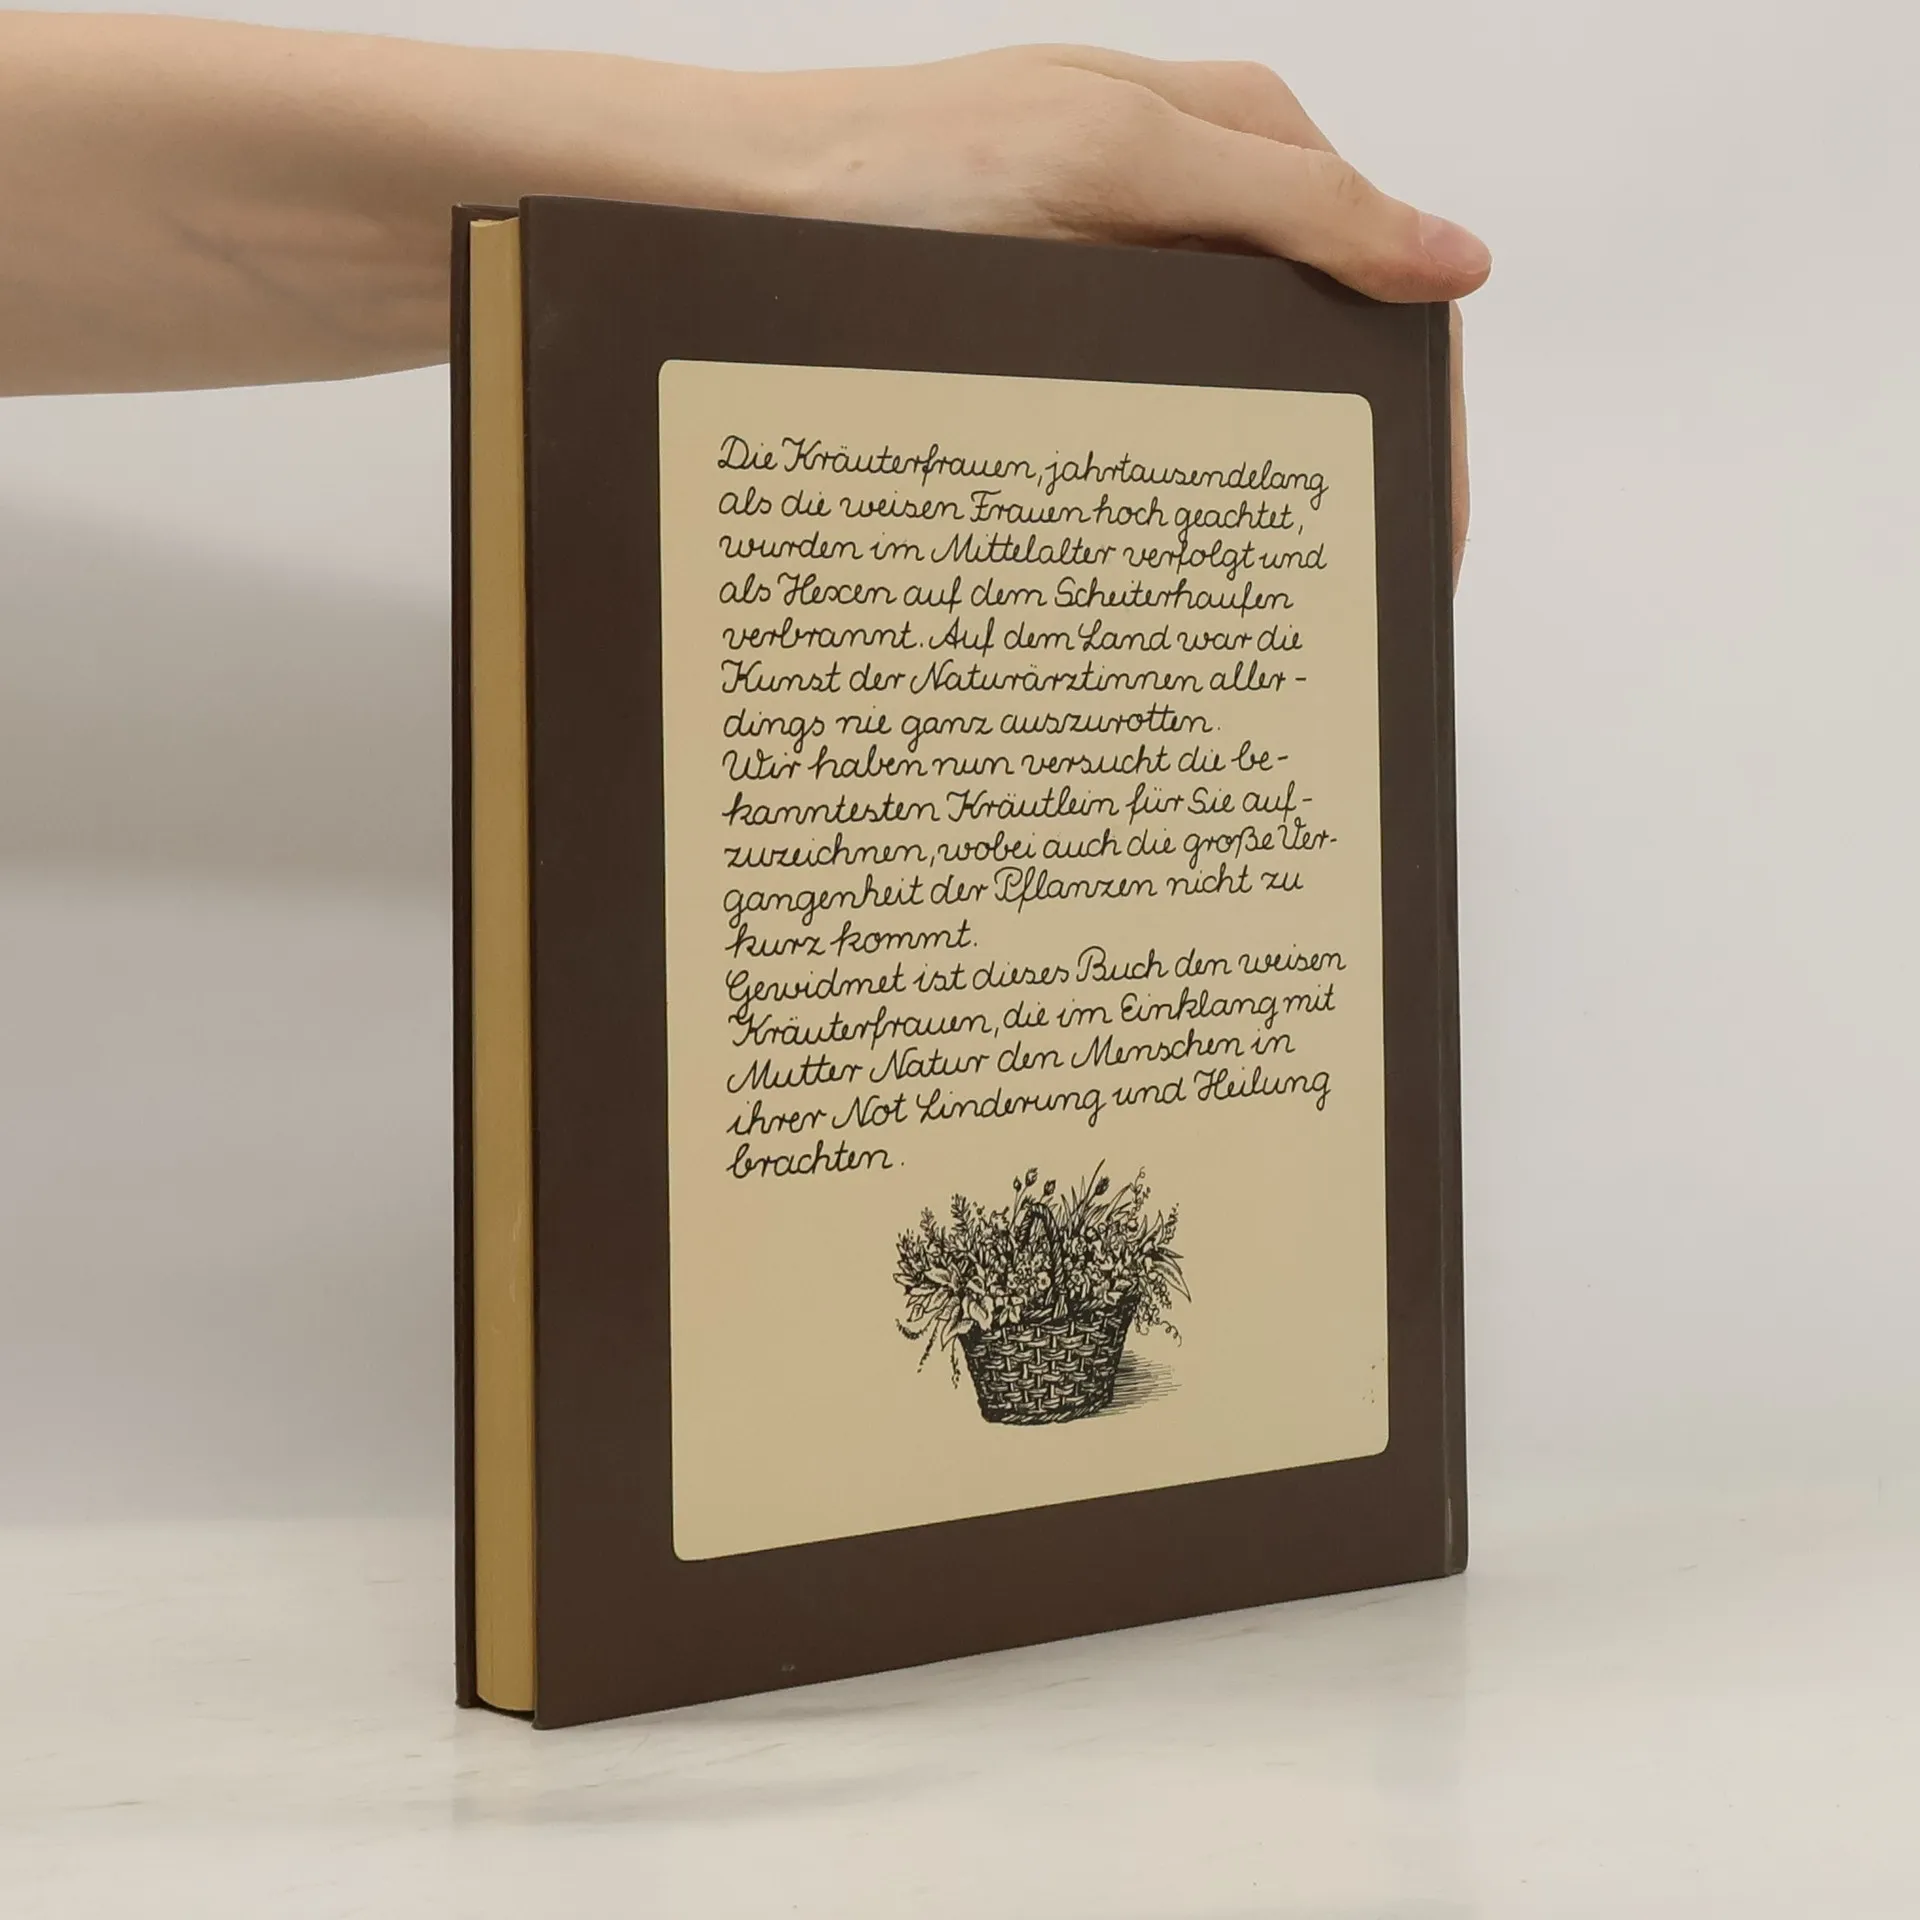 Die Kräuterfrauen, jahrtausendelang
als die weisen Frauen hoch geachtet,
wurden im Mittelalter verfolgt und
als Hexen auf dem Scheiterhaufen
verbrannt. Auf dem Land war die
Kunst der Naturärztinnen aller-
dings nie ganz auszurotten.
Wir haben nun versucht die be-
kanntesten Kräutlein für Sie auf-
zuzeichnen, wobei auch die große Ver-
gangenheit der Pflanzen nicht zu
kurz kommt.
Gewidmet ist dieses Buch den weisen
Kräuterfrauen, die im Einklang mit
Mutter Natur den Menschen in
ihrer Not Linderung und Heilung
brachten.